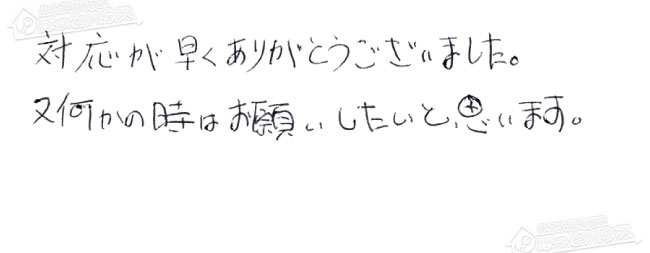 対応が早くありがとうございました。
又何かの時はお願いしたいと思います。